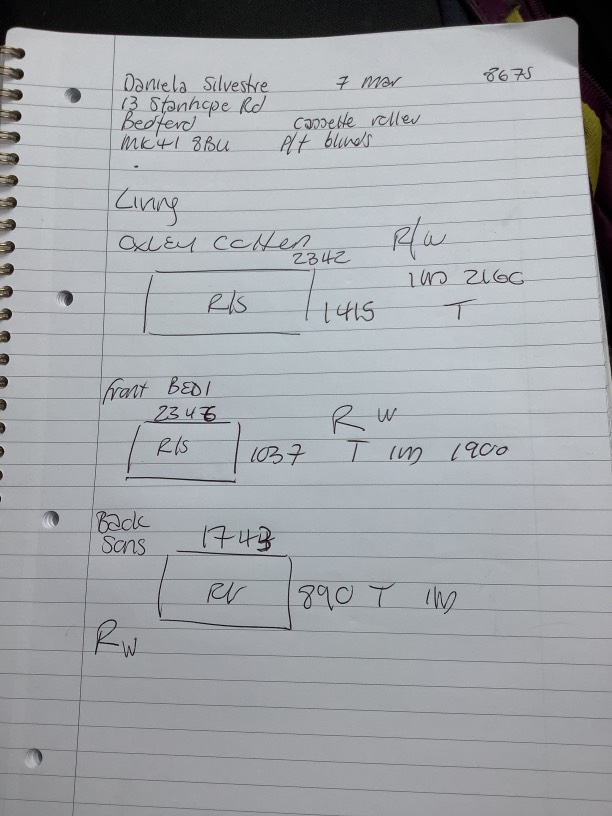 Daniela Silvestre 7 Mar 8675
13 Stanhope Rd
Bedford cassette roller
MK41 8BU P/f blinds
Living
R/W
2342
IW 2160
R/S 1415 T
front BED1
2346 R W
R/S 1037 T IW 1900
Back
Sons 1743
890 T IW
RW